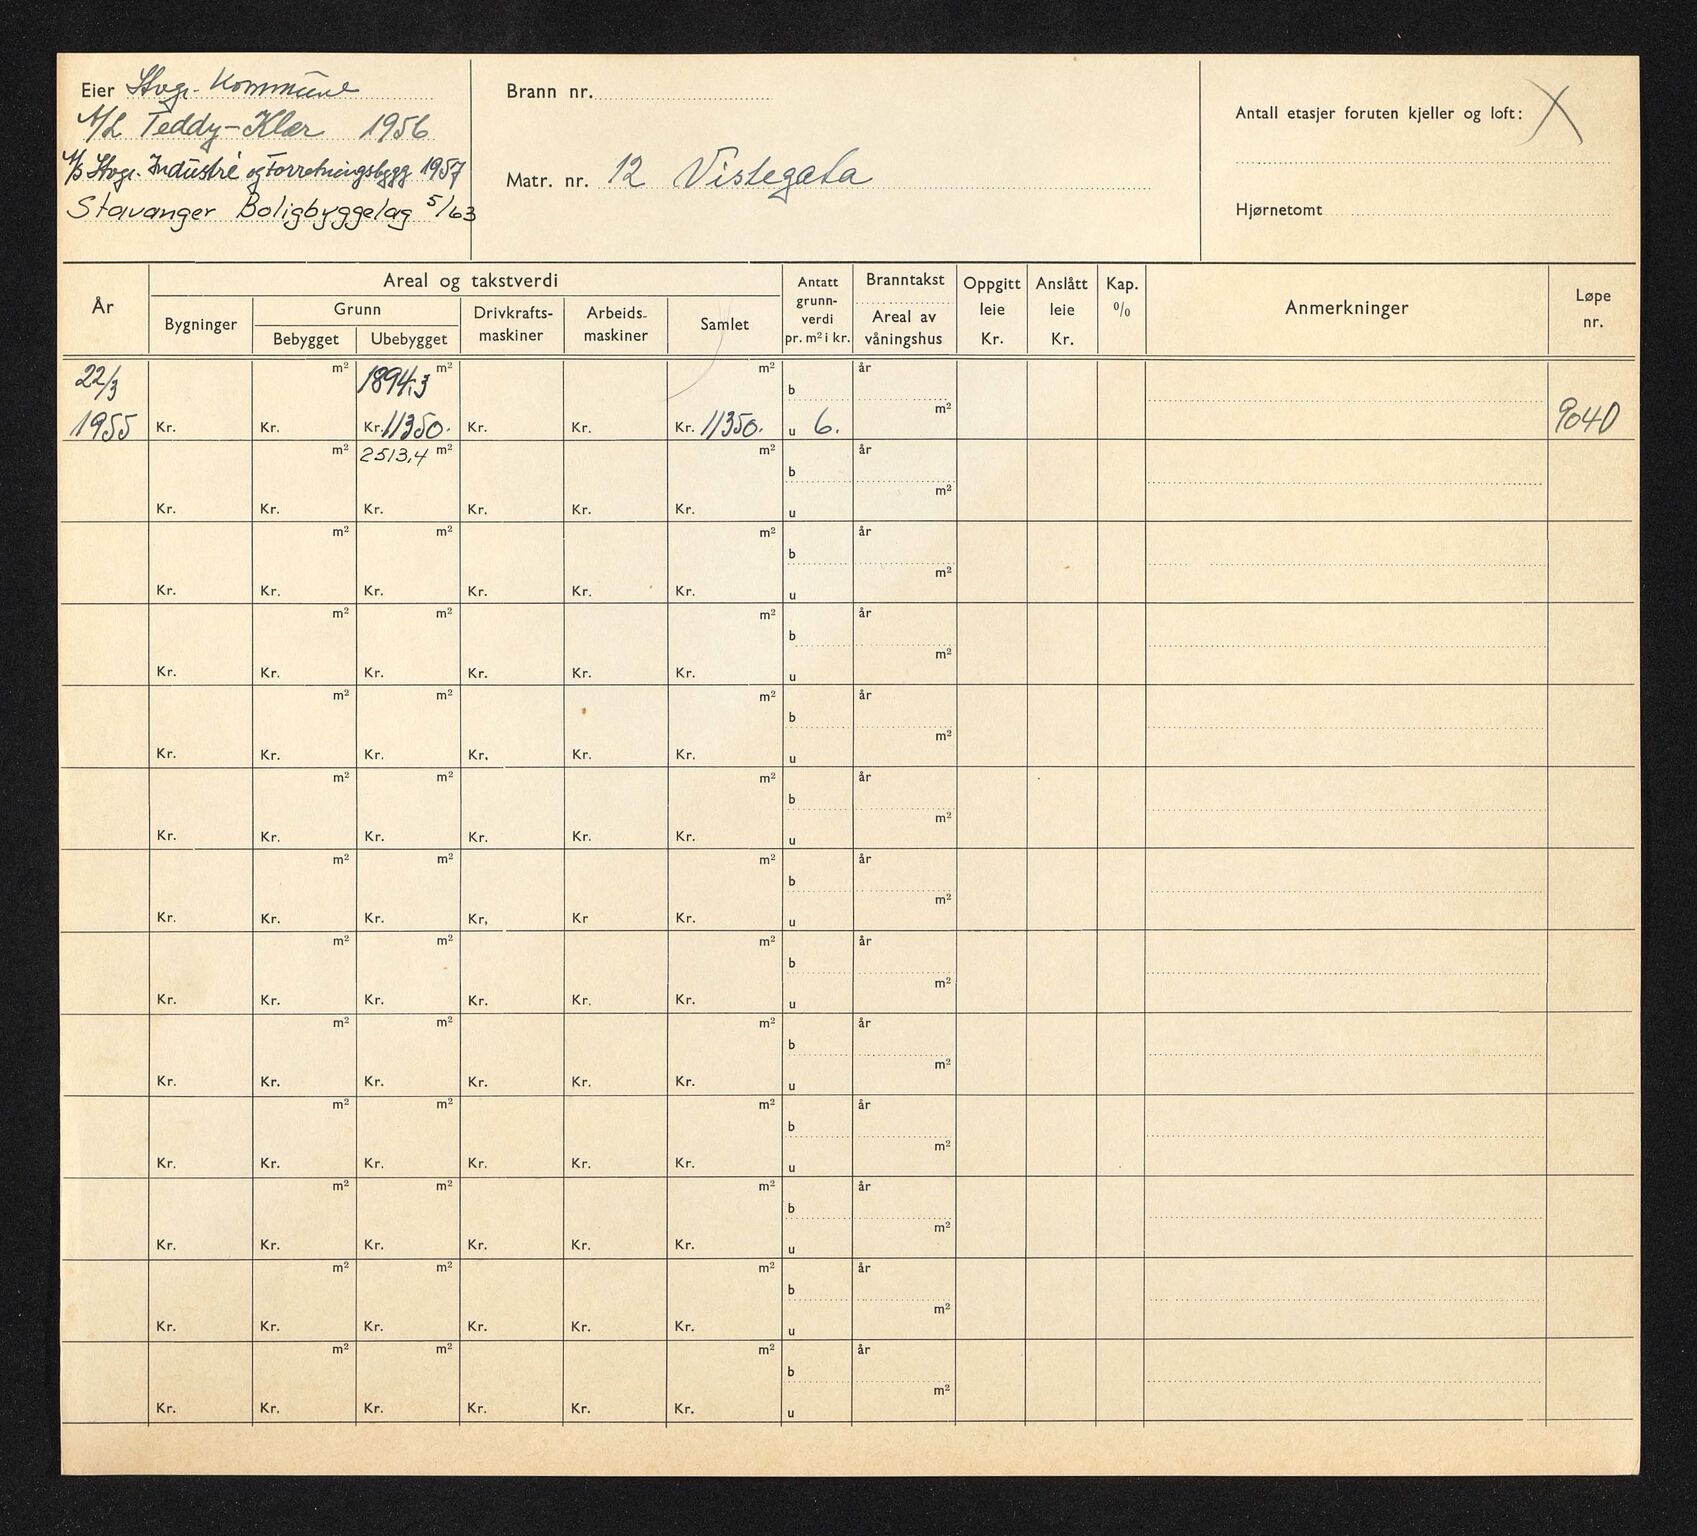 Eier Stvgr. Kommune
A/L Teddy-Klær 1956
A/S Stvgr. Industri og Forretningsbygg 1957
Stavanger Boligbyggelag 5/63
Brann nr.
Matr. nr. 12 Vistegata
Antall etasjer foruten kjeller og loft: X
Hjørnetomt
År
Areal og takstverdi
Bygninger
Grunn
Bebygget Ubebygget
Drivkrafts-
maskiner
Arbeids-
maskiner
Samlet
Antatt
grunn-
verdi
pr. m² i kr.
Branntakst
Areal av
våningshus
Oppgitt
leie
Kr.
Anslått
leie
Kr.
Kap.
%
Anmerkninger
Løpe
nr.
22/3 m² 1894,3 m² m² b år
m²
1955 Kr. Kr. Kr. 11350. Kr. Kr. Kr. 11350. u 6. 9040
m² 2513,4 m² m² år
b
m²
Kr. Kr. Kr. Kr. Kr. Kr. u
m² m² m² år
b
m²
Kr. Kr. Kr. Kr. Kr. Kr. u
m² m² m² år
b
m²
Kr. Kr. Kr. Kr. Kr. Kr. u
m² m² m² år
b
m²
Kr. Kr. Kr. Kr. Kr. Kr. u
m² m² m² år
b
m²
Kr. Kr. Kr. Kr. Kr. Kr. u
m² m² m² år
b
m²
Kr. Kr. Kr. Kr, Kr Kr. u
m² m² m² år
b
m²
Kr. Kr. Kr. Kr. Kr. Kr. u
m² m² m² år
b
m²
Kr. Kr. Kr. Kr. Kr. Kr. u
m² m² m² år
b
m²
Kr. Kr. Kr. Kr. Kr. Kr. u
m² m² m² år
b
m²
Kr. Kr. Kr. Kr. Kr. Kr. u
m² m² m² år
b
m²
Kr. Kr. Kr. Kr. Kr. Kr. u
m² m² m² år
b
m²
Kr. Kr. Kr. Kr. Kr. Kr. u